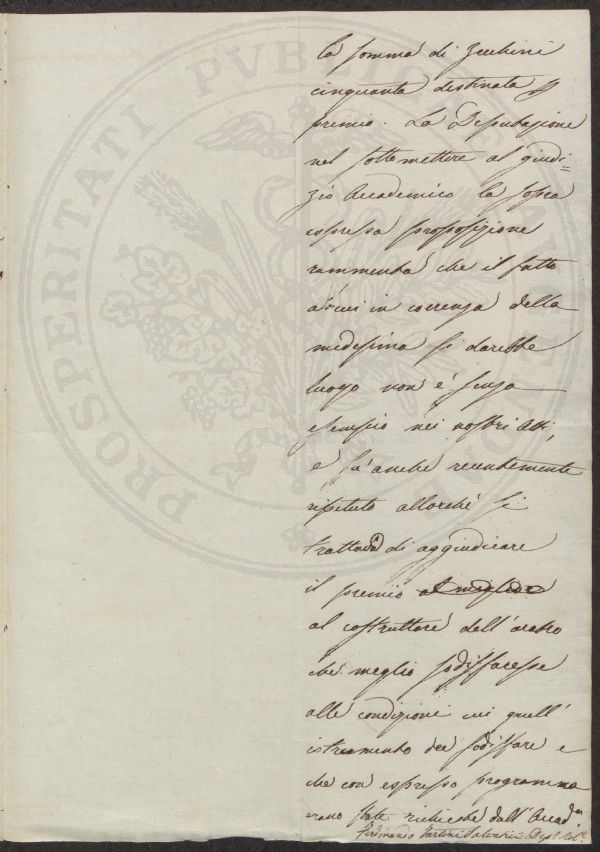 la somma di Zecchini
cinquanta destinata pp
premio. La Deputazione
nel sottomettere al giudi=
zio Accademico la sopra
espressa proposizione
rammenta che il fatto
a cui in coerenza della
medesima si darebbe
luogo non è senza
esempio nei nostri Atti,
e fù anche recentemente
ripetuto allorchè si
trattava di aggiudicare
il premio al migliore
al costruttore dell'aratro
che meglio sodisfacesse
alle condizioni cui quell'
istrumento dee sodisfare e
che con espresso programma
erano state richieste dall'Accad.a
Ferdinando Tartini Salvatici Dep.o Rel.e
PROSPERITATI PUBLICAE AUGENDAE